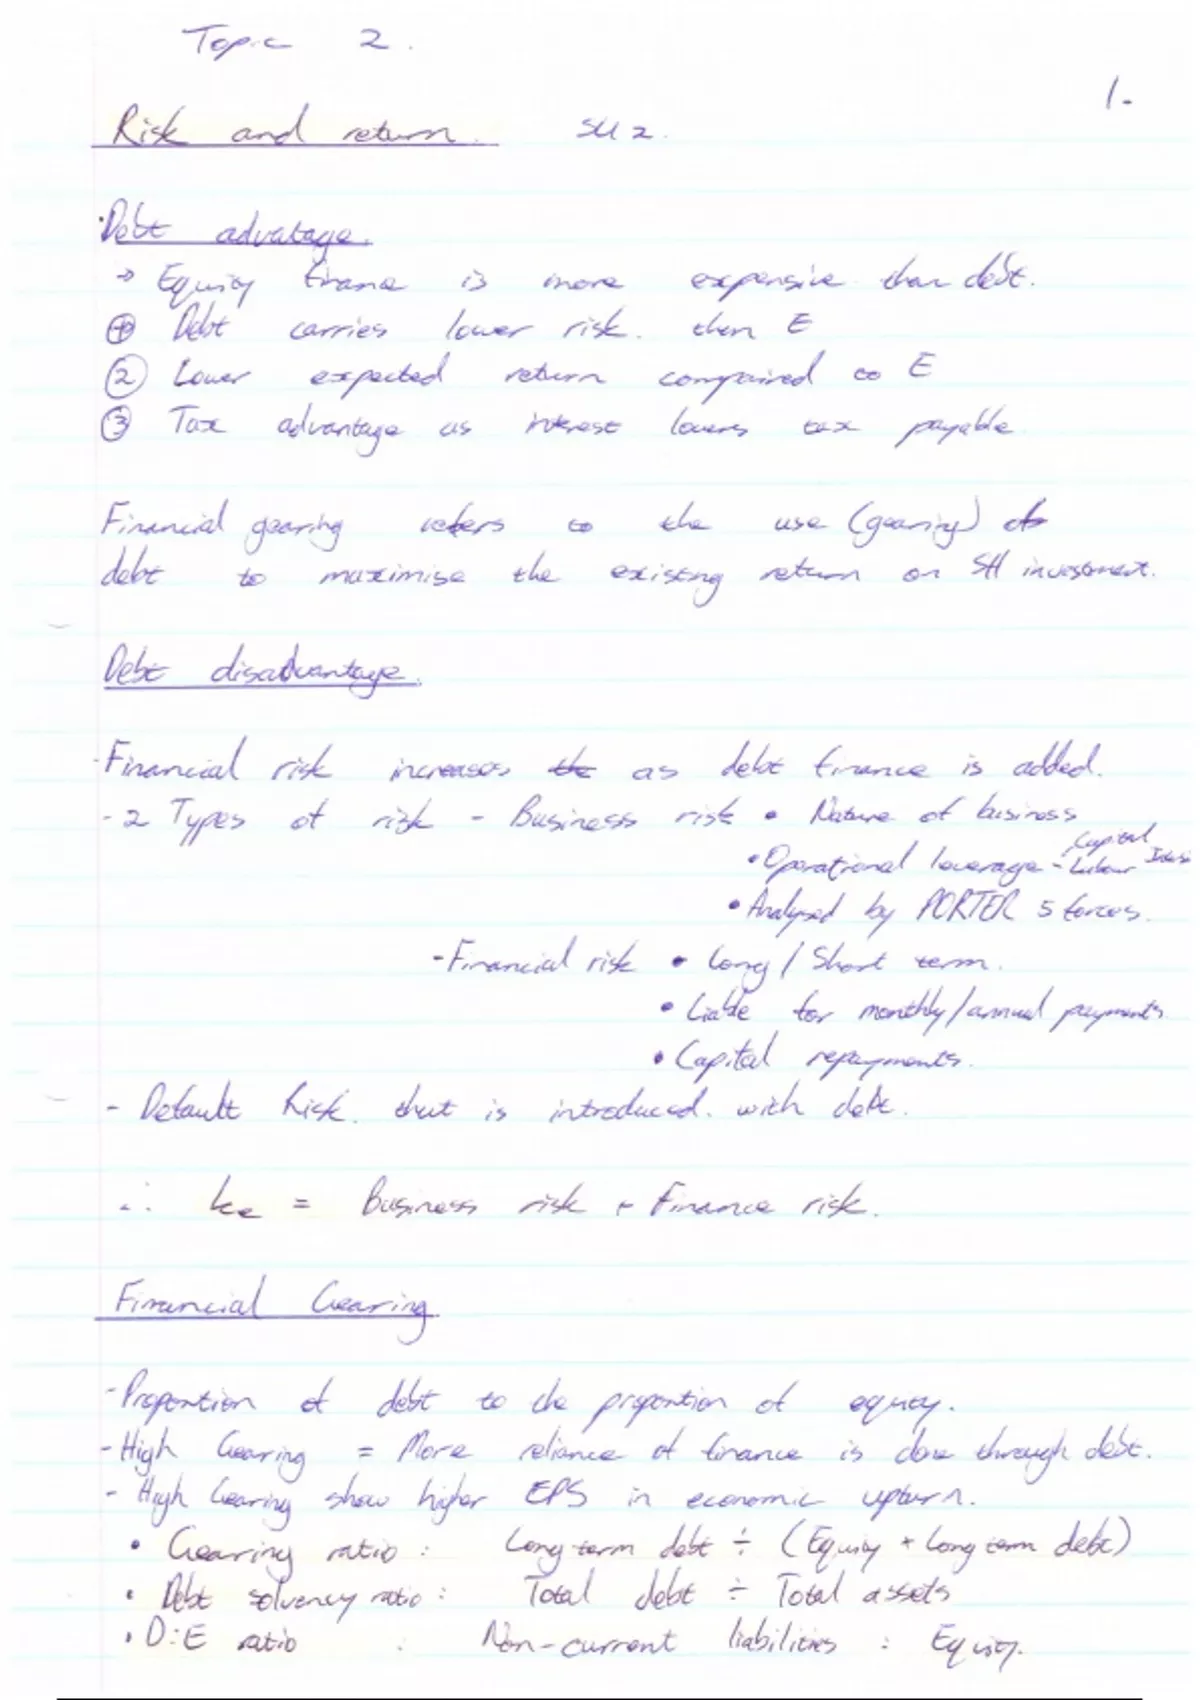 Topic 2.
1.
Risk and return. SU 2.
Debt advatage.
→ Equity finance is more expensive than debt.
① Debt carries lower risk. then E
② Lower expected return compaired to E
③ Tax advantage as interest lowers tax payable.
Financial gearing refers to the use (gearing) of
debt to maximise the existing return on SH investment.
Debt disadvantage.
- Financial risk increases the as debt finance is added.
- 2 Types of risk - Business risk • Nature of business
• Operational leverage - Capital Labour
• Analysed by PORTER 5 forces.
- Financial risk • Long / Short term.
• Liable for monthly/annual payments
• Capital repayments.
- Default Risk. that is introduced. with debt.
∴ ke = Business risk + Finance risk.
Financial Gearing
- Proportion of debt to the proportion of equity.
- High Gearing = More reliance of finance is done through debt.
- High Gearing show higher EPS in economic upturn.
• Gearing ratio : Long term debt ÷ (Equity + Long term debt)
• Debt solvency ratio : Total debt ÷ Total assets
• D:E ratio : Non-current liabilities : Equity.